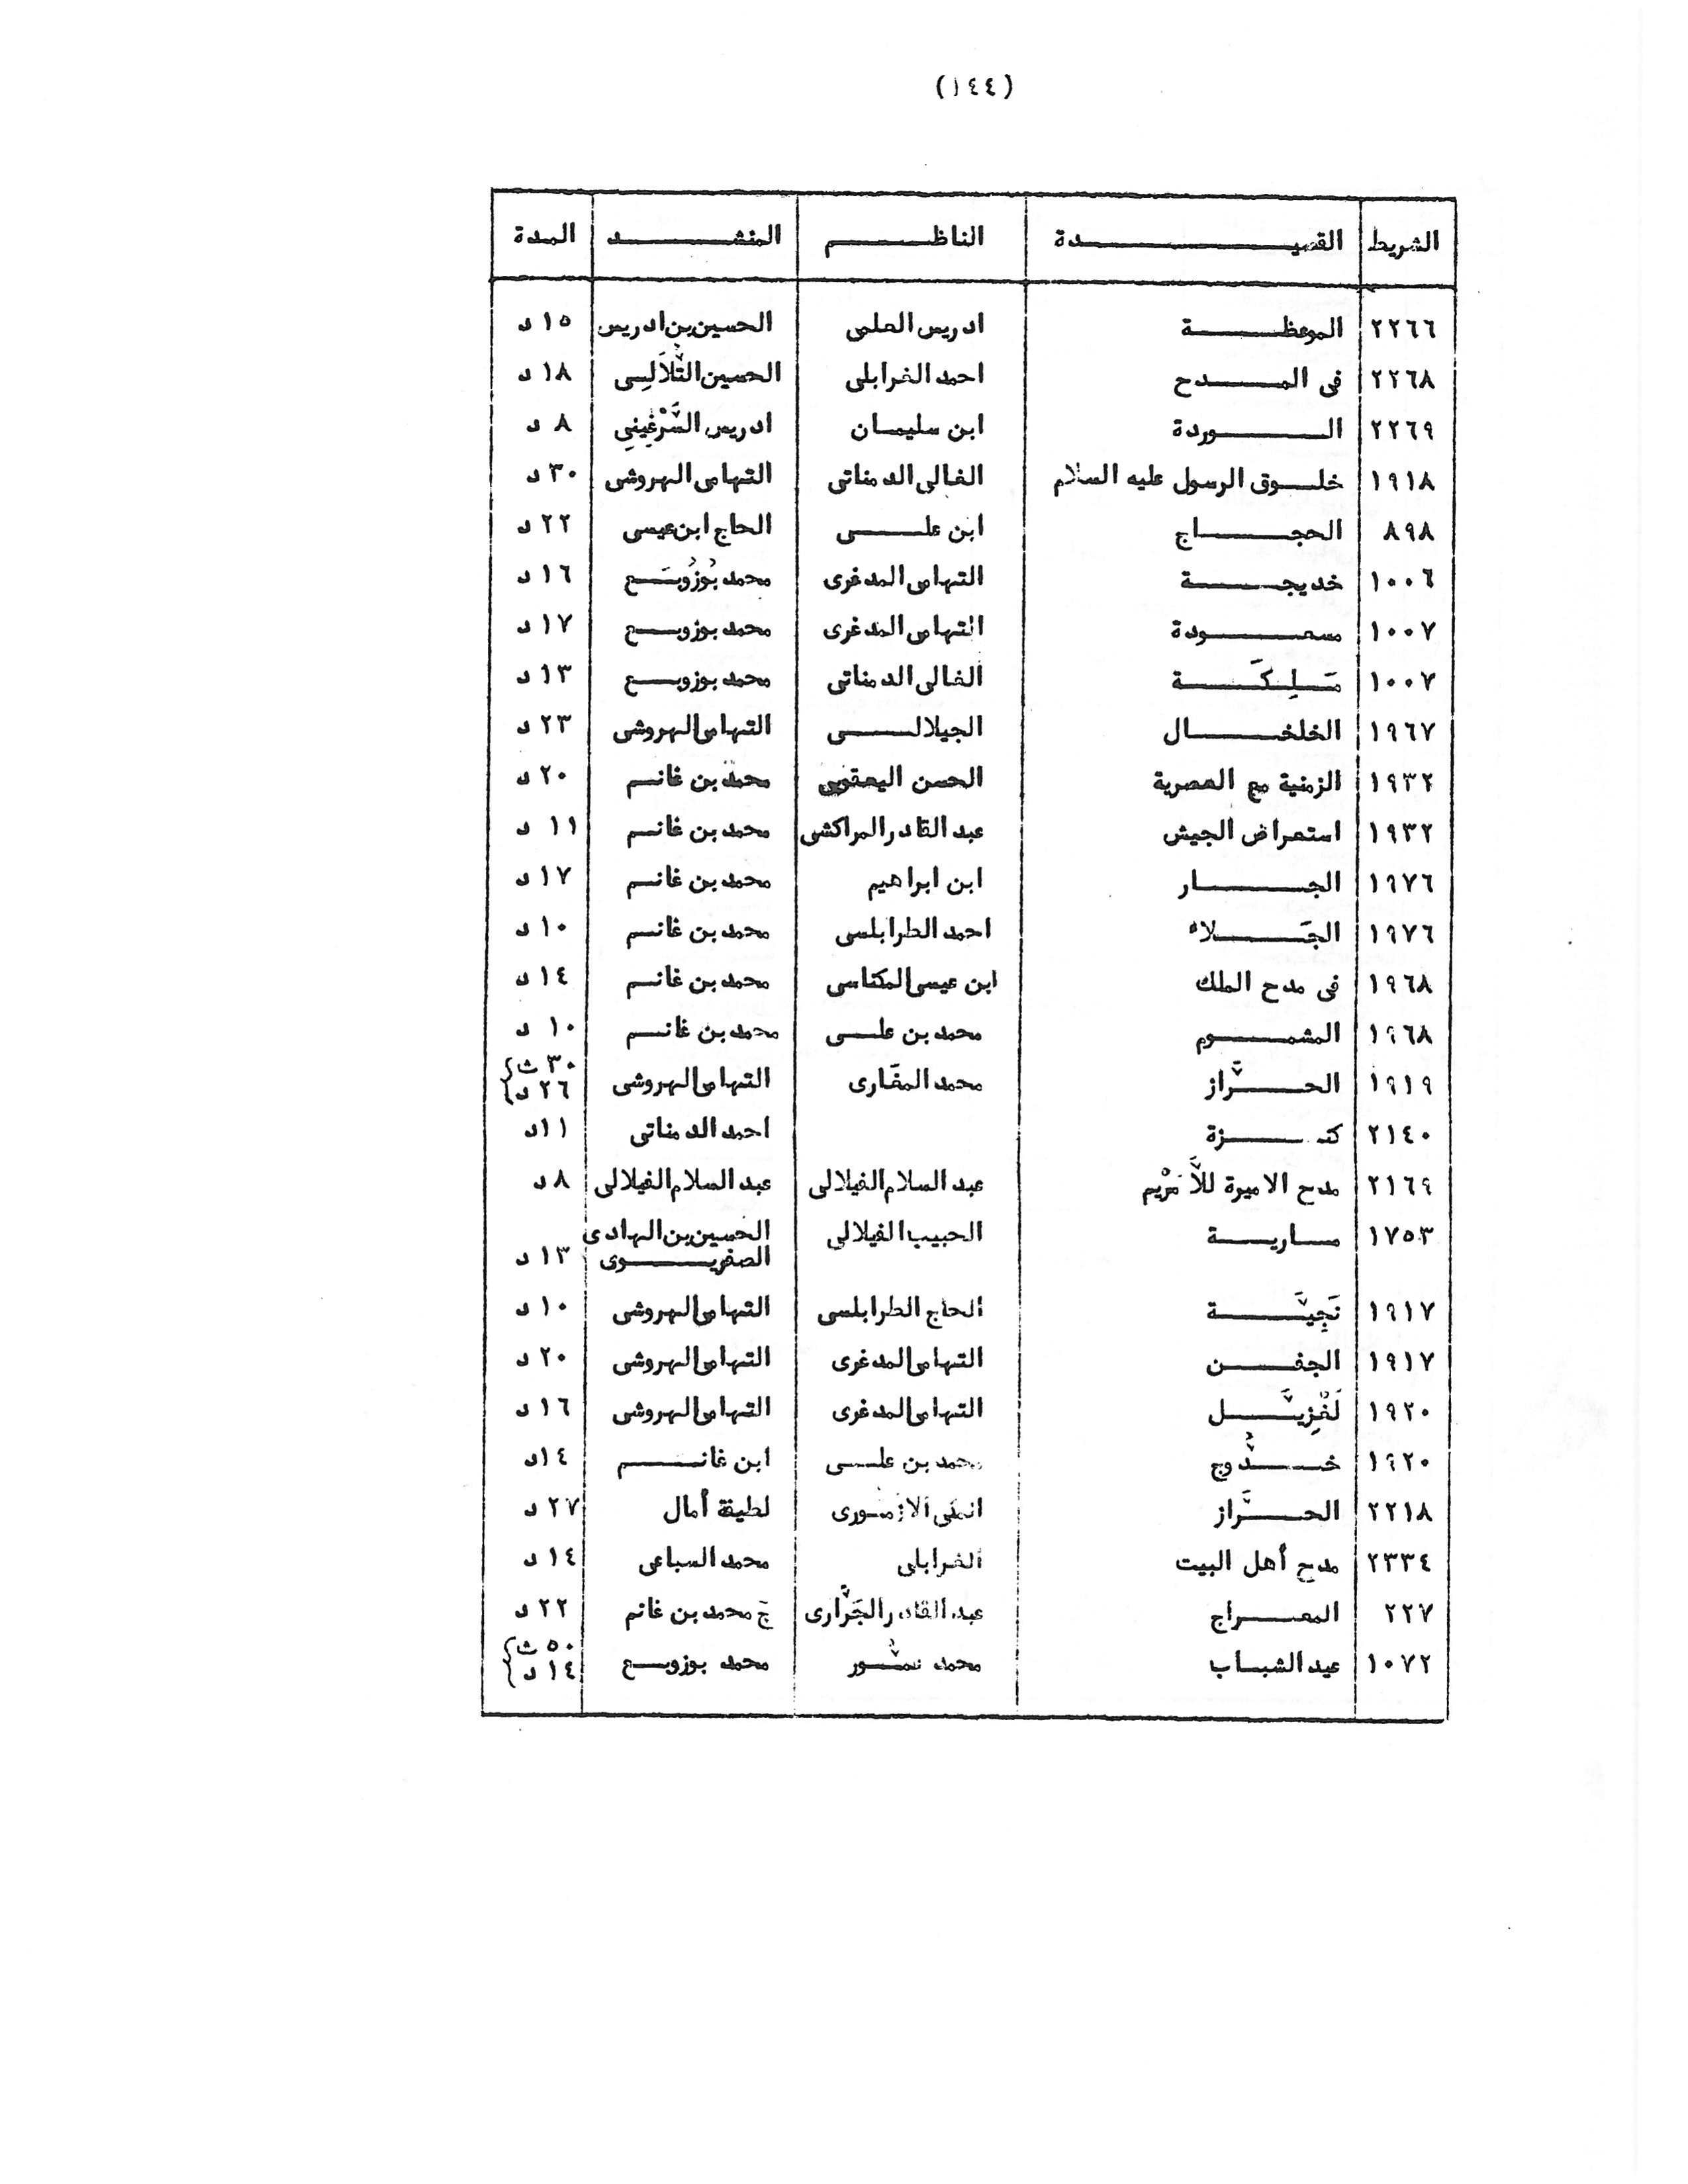 (١٤٤)
الشريط القصيدة الناظم المنشد المدة
٢٢٦٦ الموعظة ادريس العلمى الحسين بن ادريس ١٥ د
٢٢٦٨ فى المدح احمد الغرابلى الحسين التُّلاَلِى ١٨ د
٢٢٦٩ الوردة ابن سليمان ادريس السَّرْغِينِي ٨ د
١٩١٨ خلوق الرسول عليه السلام الغالى الدمناتى التهامى الهروشى ٣٠ د
٨٩٨ الحجاج ابن على الحاج ابن عيسى ٢٢ د
١٠٠٦ خديجة التهامى المدغرى محمد بُوزُوبَع ١٦ د
١٠٠٧ مسعودة التهامى المدغرى محمد بوزوبع ١٧ د
١٠٠٧ مَلِكَة الغالى الدمناتى محمد بوزوبع ١٣ د
١٩٦٧ الخلخال الجيلالى التهامى الهروشى ٢٣ د
١٩٣٢ الزمنية مع العصرية الحسن اليعقوبى محمد بن غانم ٢٠ د
١٩٣٢ استعراض الجيش عبد القادر المراكشى محمد بن غانم ١١ د
١٩٧٦ الجار ابن ابراهيم محمد بن غانم ١٧ د
١٩٧٦ الجَلاء احمد الطرابلسى محمد بن غانم ١٠ د
١٩٦٨ فى مدح الملك ابن عيسى المكناسى محمد بن غانم ١٤ د
١٩٦٨ المشموم محمد بن على محمد بن غانم ١٠ د
١٩١٩ الحرَّاز محمد المقَارى التهامى الهروشى ٣٠ ث ٢٦ د
٢١٤٠ كنزة احمد الدمناتى ١١ د
٢١٦٩ مدح الاميرة للاَّ مَرْيم عبد السلام الفيلالى عبد السلام الفيلالى ٨ د
١٧٥٣ مارية الحبيب الفيلالى الحسين بن الهادى
الصفريوى ١٣ د
١٩١٧ نَجِيَّة الحاج الطرابلسى التهامى الهروشى ١٠ د
١٩١٧ الجفن التهامى المدغرى التهامى الهروشى ٢٠ د
١٩٢٠ لَغْزِيَّل التهامى المدغرى التهامى الهروشى ١٦ د
١٩٢٠ خدُّوج محمد بن على ابن غانم ١٤ د
٢٢١٨ الحرَّاز لطيفة أمال ٢٧ د
٢٣٣٤ مدح أهل البيت الغرابلى محمد السباعى ١٤ د
٢٢٧ المعراج عبد القادر الجَرَّارى ج محمد بن غانم ٢٢ د
١٠٧٢ عيد الشباب محمد محمد بوزوبع ٥٠ ث ١٤ د